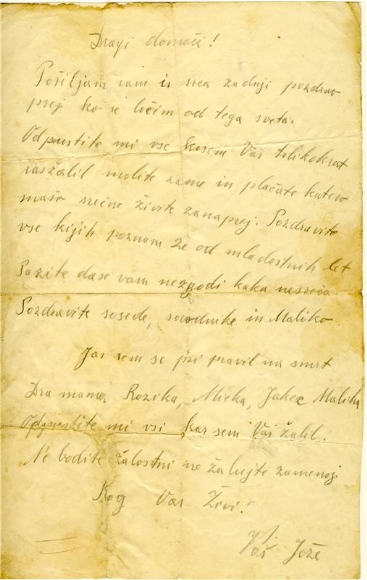 Dragi domači!
Pošiljam vam iz srca zadnji pozdrav
prej ko se ločim od tega sveta.
Odpustite mi vse kosem Vas tolikokrat
razžalil molite zame in plačate katero
mašo srečno živite zanaprej. Pozdravite
vse kijih poznam že od mladostnih let
Pazite dase vam nezgodi kaka nesreča
Pozdravite sosede, sorodnike in Maliko
Jas sem se pri pravil na smrt
Dra mama, Rozika, Micka, Jakec Malika
Odpustite mi vsi kar sem Vas žalil.
Ne bodite žalostni ne žalujte zamenoj
Bog Vas Živi!
Vaš Jože